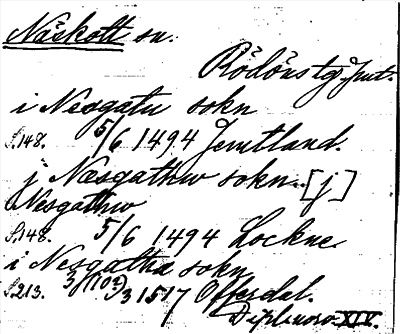 Näskott sn.
Rödöns tg Jmt.
i Nesgatu sokn
S.148. 5/6 1494 Jemtland.
i Næsgathw sokn. [j]
Nesgathw
S.148. 5/6 1494 Lockne
i Nesgatha sokn
S.213. 3/3 1517 Offerdal.
Diplnorv XIV.